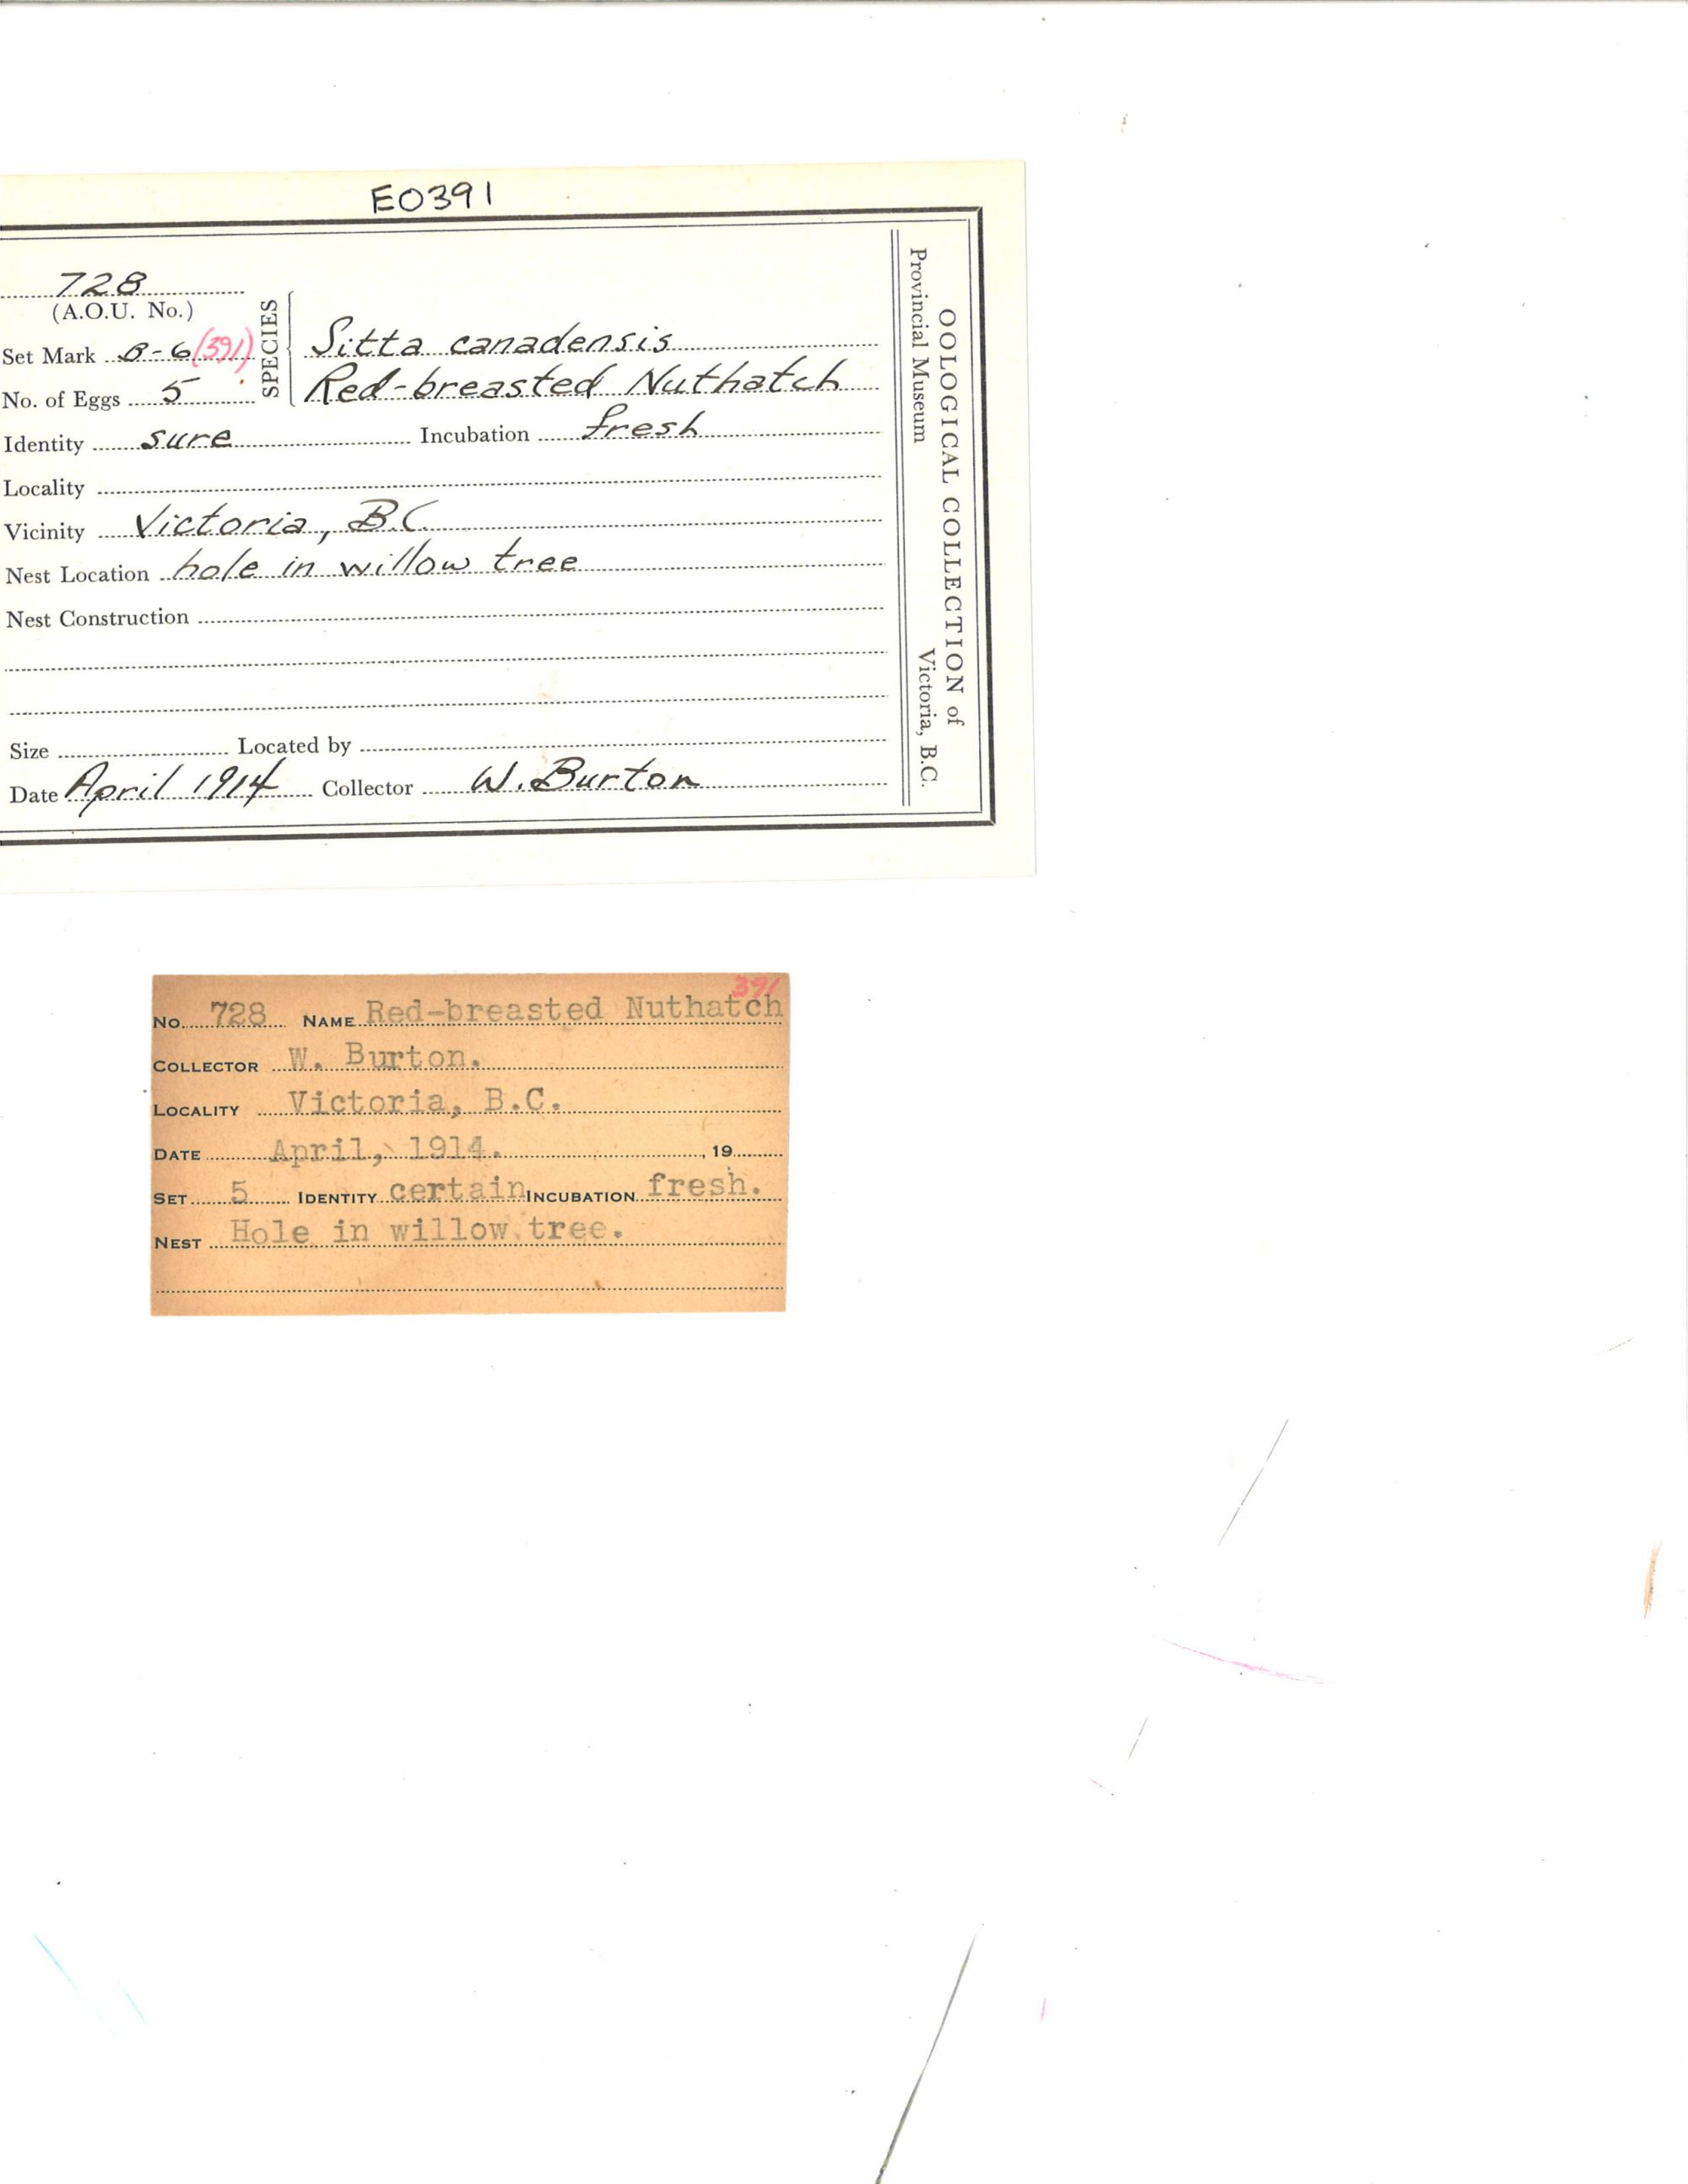 E0391
728
(A.O.U. No.)
Set Mark B-6 (391)
No. of Eggs 5
SPECIES
Sitta canadensis
Red-breasted Nuthatch
Identity sure Incubation fresh
Locality
Vicinity Victoria, B.C.
Nest Location hole in willow tree
Nest Construction
Size Located by
Date April 1914 Collector W. Burton
OOLOGICAL COLLECTION of
Provincial Museum Victoria, B.C.
391
No. 728 NAME Red-breasted Nuthatch
COLLECTOR W. Burton.
LOCALITY Victoria, B.C.
DATE April, 1914. , 19
SET 5 IDENTITY certain INCUBATION fresh.
NEST Hole in willow tree.